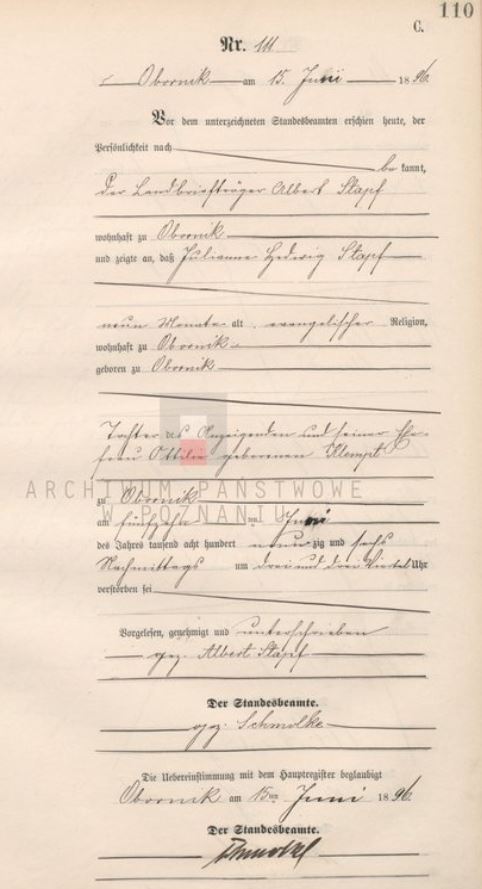 110
C.
Nr. 111
Obornik am 15. Juni 1896.
Vor dem unterzeichneten Standesbeamten erschien heute, der
Persönlichkeit nach
be kannt,
der Landbriefträger Albert Stapf
wohnhaft zu Obornik
und zeigte an, daß Julianne Hedwig Stapf
neun Monate alt, evangelischer Religion,
wohnhaft zu Obornik
geboren zu Obornik
Tochter des Anzeigenden und seiner Ehe-
frau Ottilie geborenen
ARCHIWUM PAŃSTWOWE
zu Obornik
W POZNANIU
am fünfzehn ten Juni
des Jahres tausend acht hundert neun zig und sechs
Nachmittags um drei und drei Viertel Uhr
verstorben sei
Vorgelesen, genehmigt und unterschrieben
gez. Albert Stapf
Der Standesbeamte.
gez. Schmolke
Die Uebereinstimmung mit dem Hauptregister beglaubigt
Obornik am 15ten Juni 1896.
Der Standesbeamte.
Schmolke